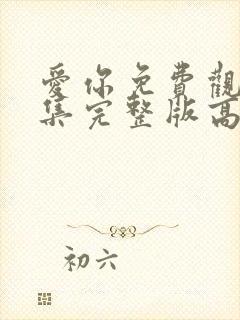 愛你免費觀
集完整版高
初六